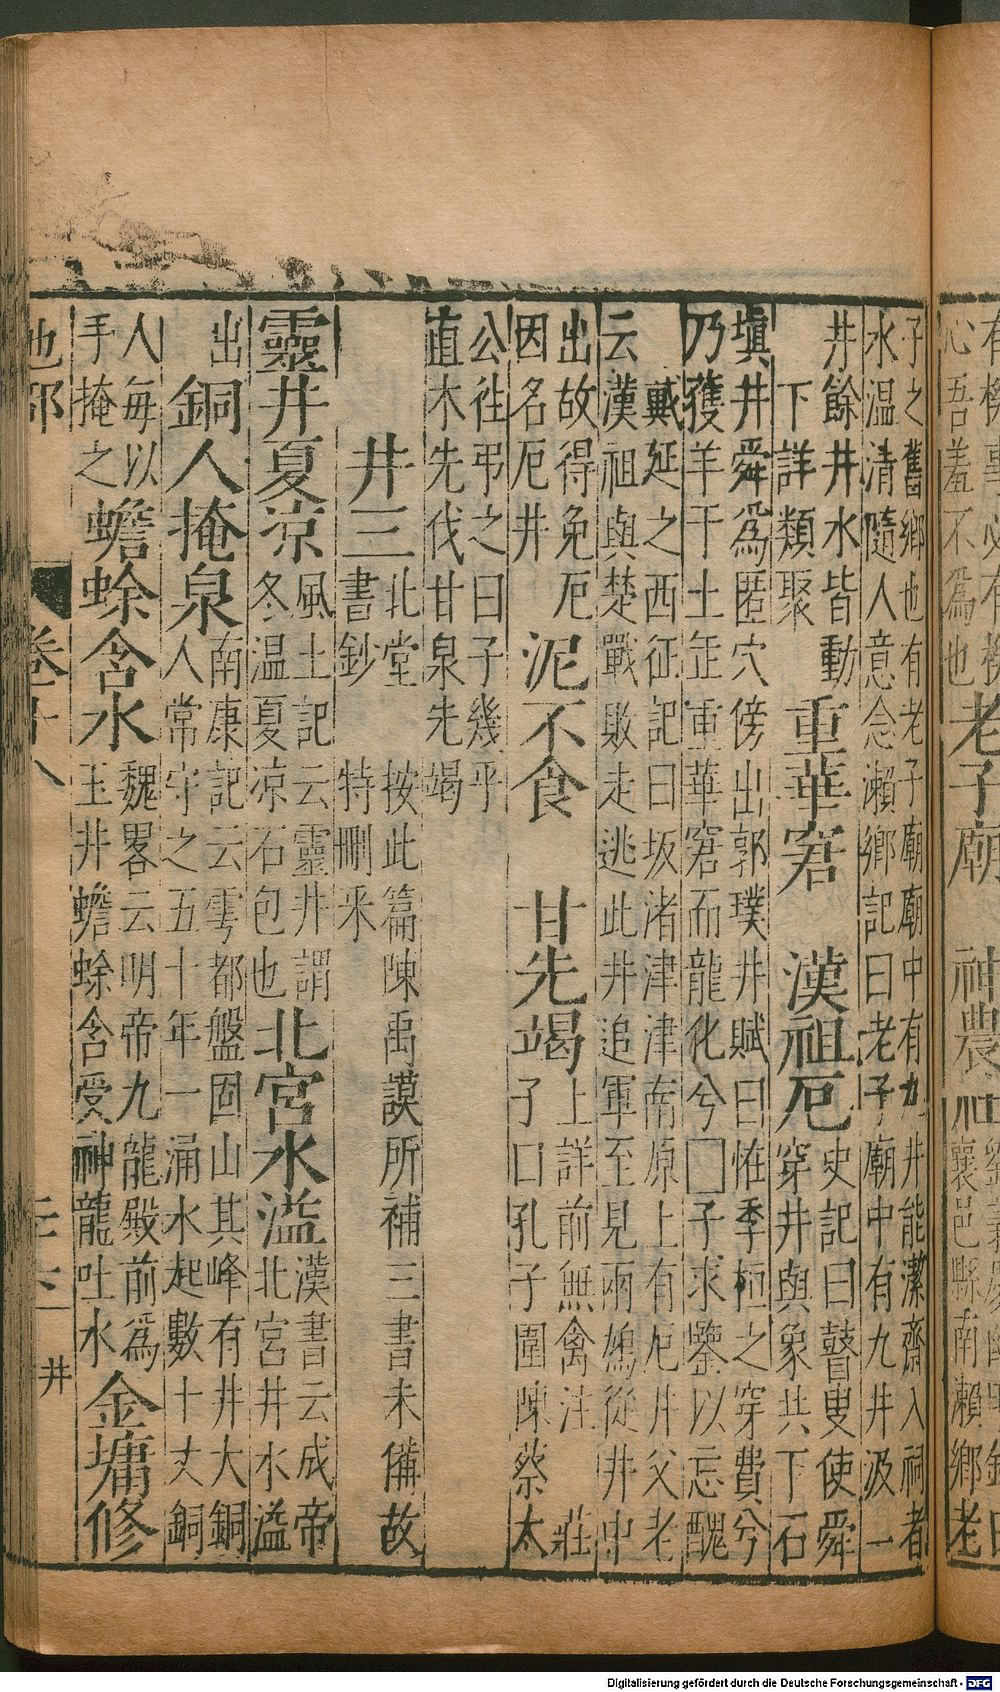 有機事必有機
心吾羞不爲也
老子廟
神農社
襄邑縣南瀨鄉老
子之舊鄉也有老子廟廟中有九井能潔齋入祠者
水温清隨人意念瀨鄉記曰老子廟中有九井汲一
井餘井水皆動
下詳類聚
重華窘
漢祖厄
史記曰瞽叟使舜
穿井與象共下石
塡井舜爲匿穴傍出郭璞井賦曰恠季桓之穿費兮
乃獲羊于土缶重華窘而龍化兮□子求鑒以忘醜
戴延之西征記曰坂渚津津南原上有厄井父老
云漢祖與楚戰敗走逃此井追軍至見兩鳩從井中
出故得免厄
因名厄井
泥不食
甘先竭
上詳前無禽注 莊
子曰孔子圍陳蔡太
公徃弔之曰子幾乎
直木先伐甘泉先竭
井三
北堂
書鈔
按此篇陳禹謨所補三書未備故
特刪釆
靈井夏凉
風土記云靈井謂
冬温夏凉石包也
北宮水溢
漢書云成帝
北宮井水溢
出
銅人掩泉
南康記云雩都盤固山其峰有井大銅
人常守之五十年一涌水起數十丈銅
人每以
手掩之
蟾蜍含水
魏畧云明帝九龍殿前爲
玉井蟾蜍含受神龍吐水
金墉修
地部
卷十八
井
Digitalisierung gefördert durch die Deutsche Forschungsgemeinschaft - DFG